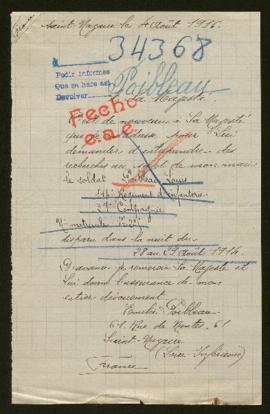 Saint Nazaire le 4 Août 1916
34368
Pedir informes
Que se haga así
Devolver
Poibleau
Sa Majesté
Fecho
e.a.e.
de nouveau à Sa Majesté
pour Lui
demander d'entreprendre des
recherches au de mon mari
le soldat Poibleau Louis
Régiment d'infanterie
Compagnie
Nº matricule
disparu dans la nuit du
28 au 29 Août 1914
D'avance je remercie Sa Majesté et
Lui donne l'assurance de mon
entier dévouement.
Poibleau
61 Rue de Nantes, 61
Saint-Nazaire
(Loire Inférieure)
France